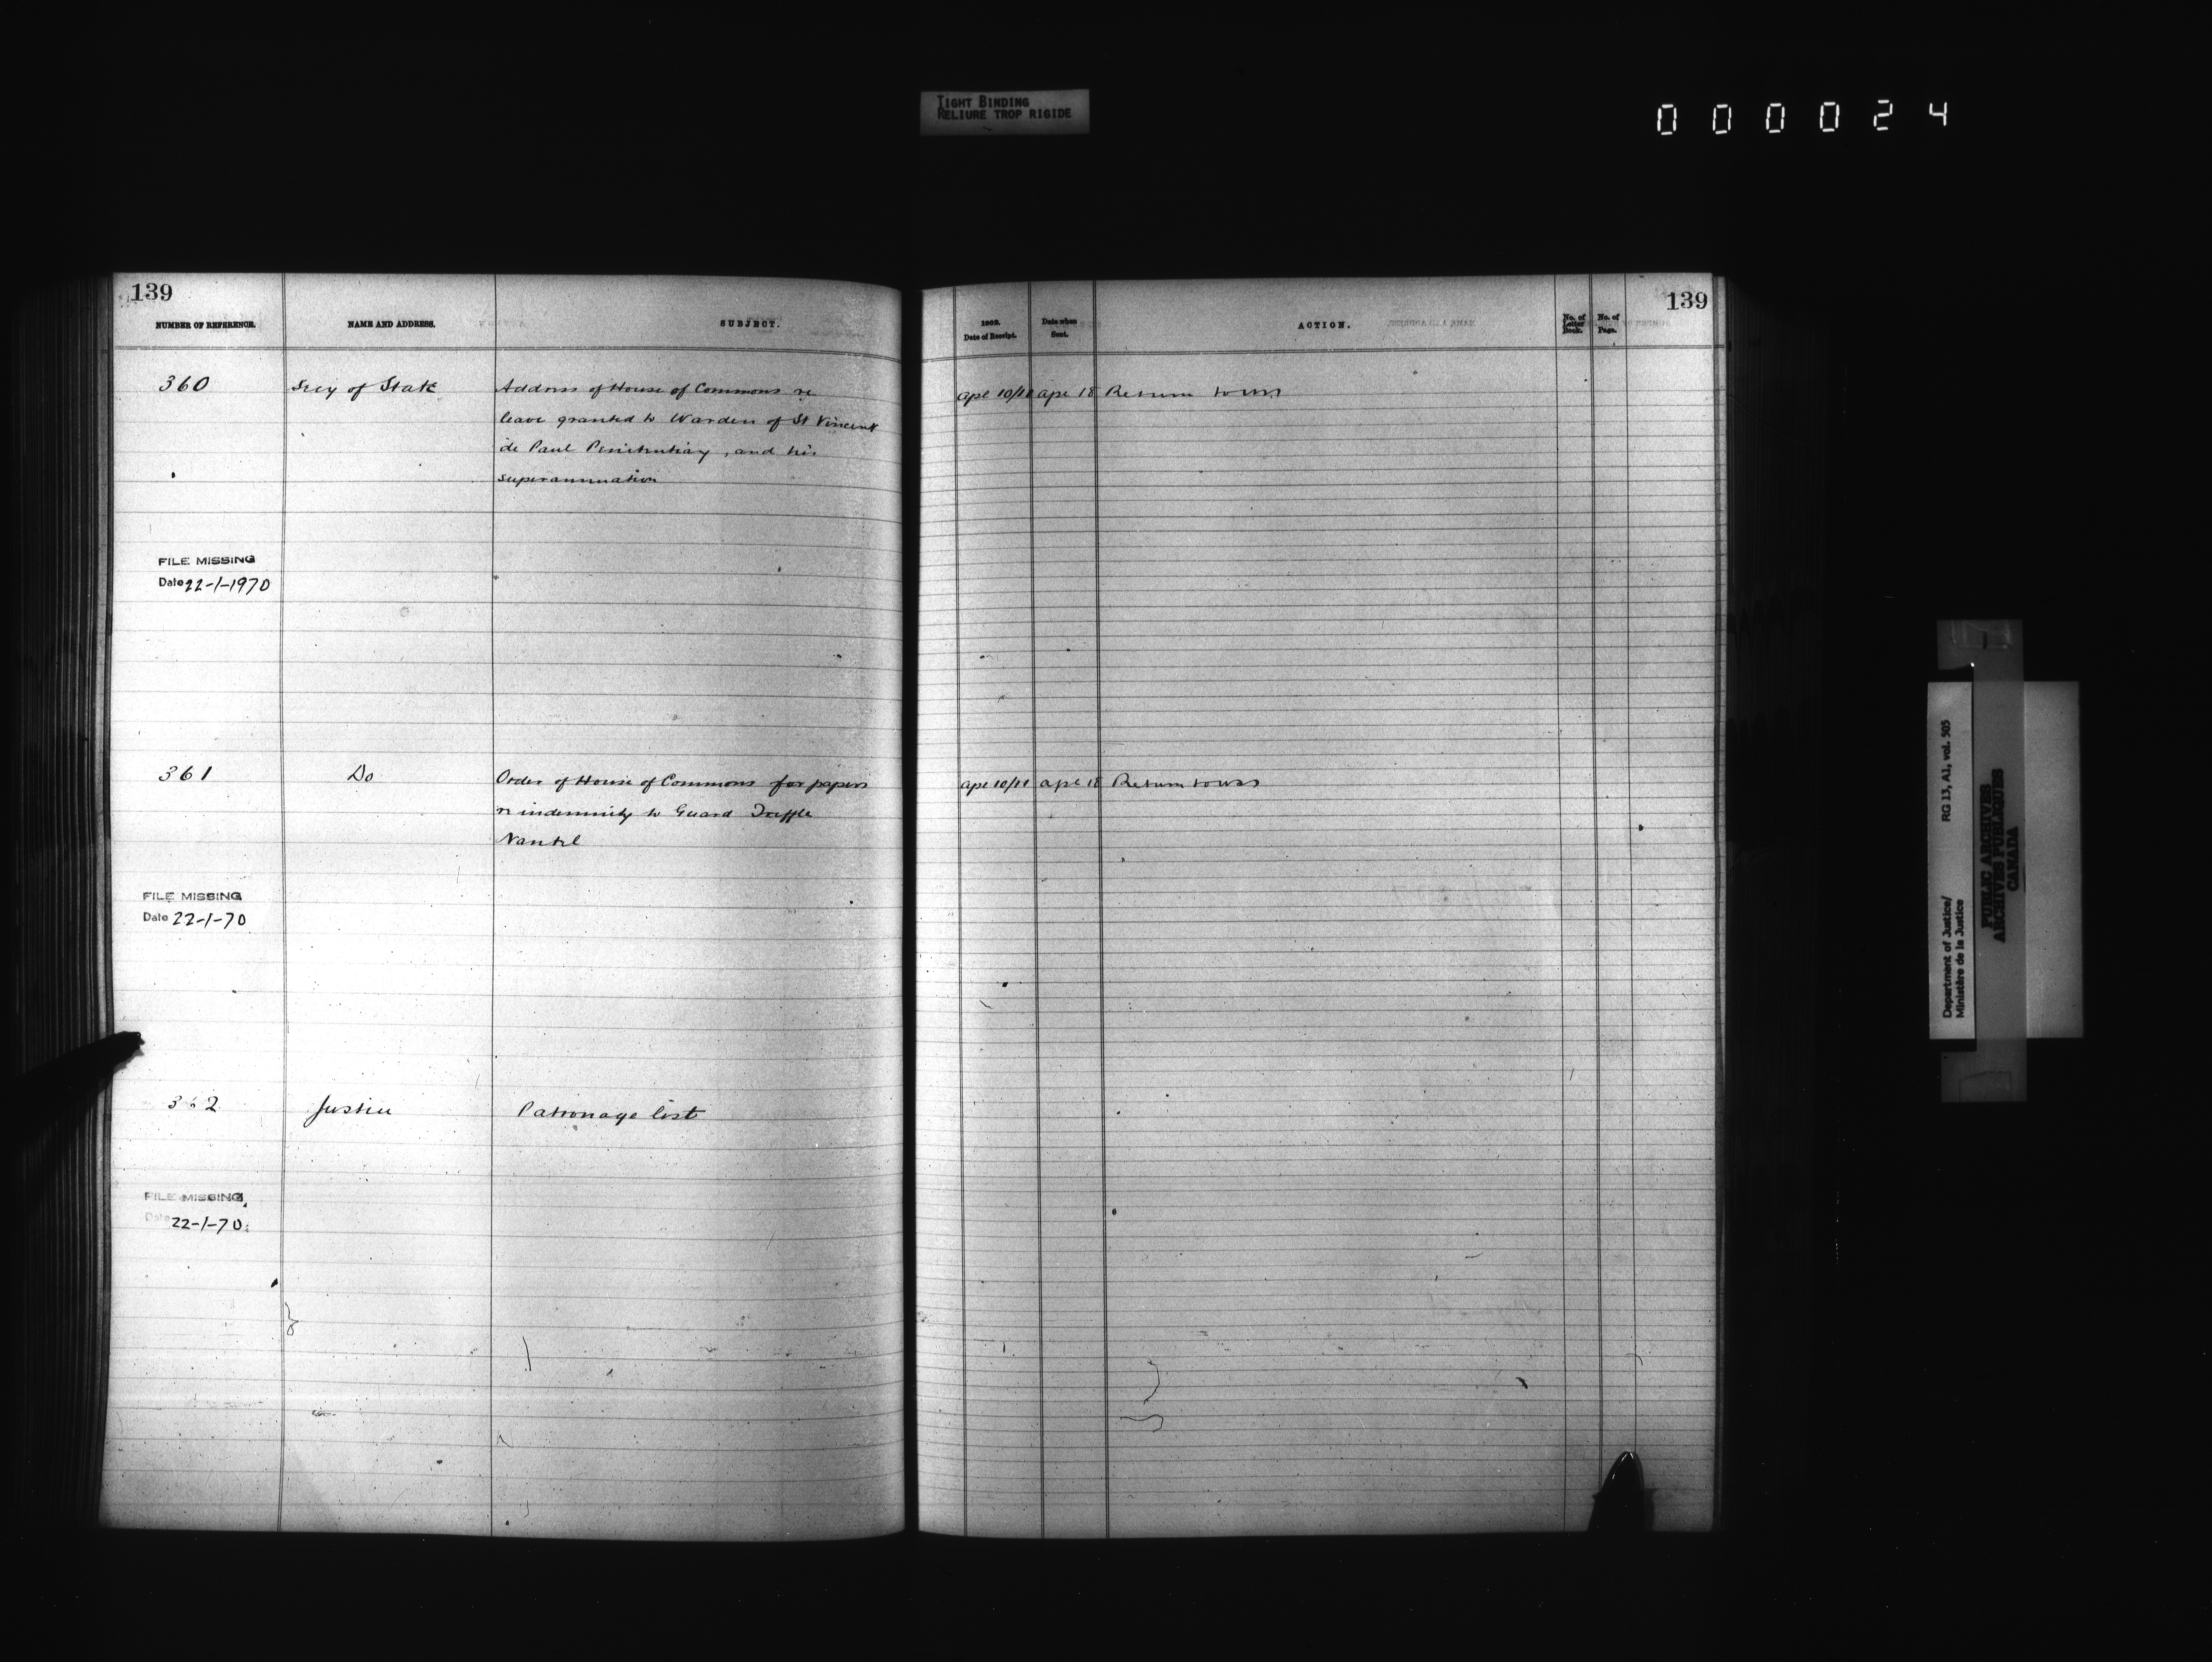 TIGHT BINDING
RELIURE TROP RIGIDE
000024
139
NUMBER OF REFERENCE.
NAME AND ADDRESS.
SUBJECT.
360
Secy of State
Address of House of Commons re
leave granted to Warden of St Vincent
de Paul Penitentiary, and his
superannuation
FILE MISSING
Date 22-1-1970
361
Do
Order of House of Commons for papers
re indemnity to Guard Treffle
Nantel
FILE MISSING
Date 22-1-70
362
Justice
Patronage list
FILE MISSING
Date 22-1-70
139
1902.
Date of Receipt.
Date when
Sent.
ACTION.
No. of
Letter
Book.
No. of
Page.
Apl 10/11
Apl 18
Return to
Apl 10/11
Apl 18
Return to
RG 13, A1, vol. 505
Department of Justice/
Ministère de la Justice
PUBLIC ARCHIVES
ARCHIVES PUBLIQUES
CANADA